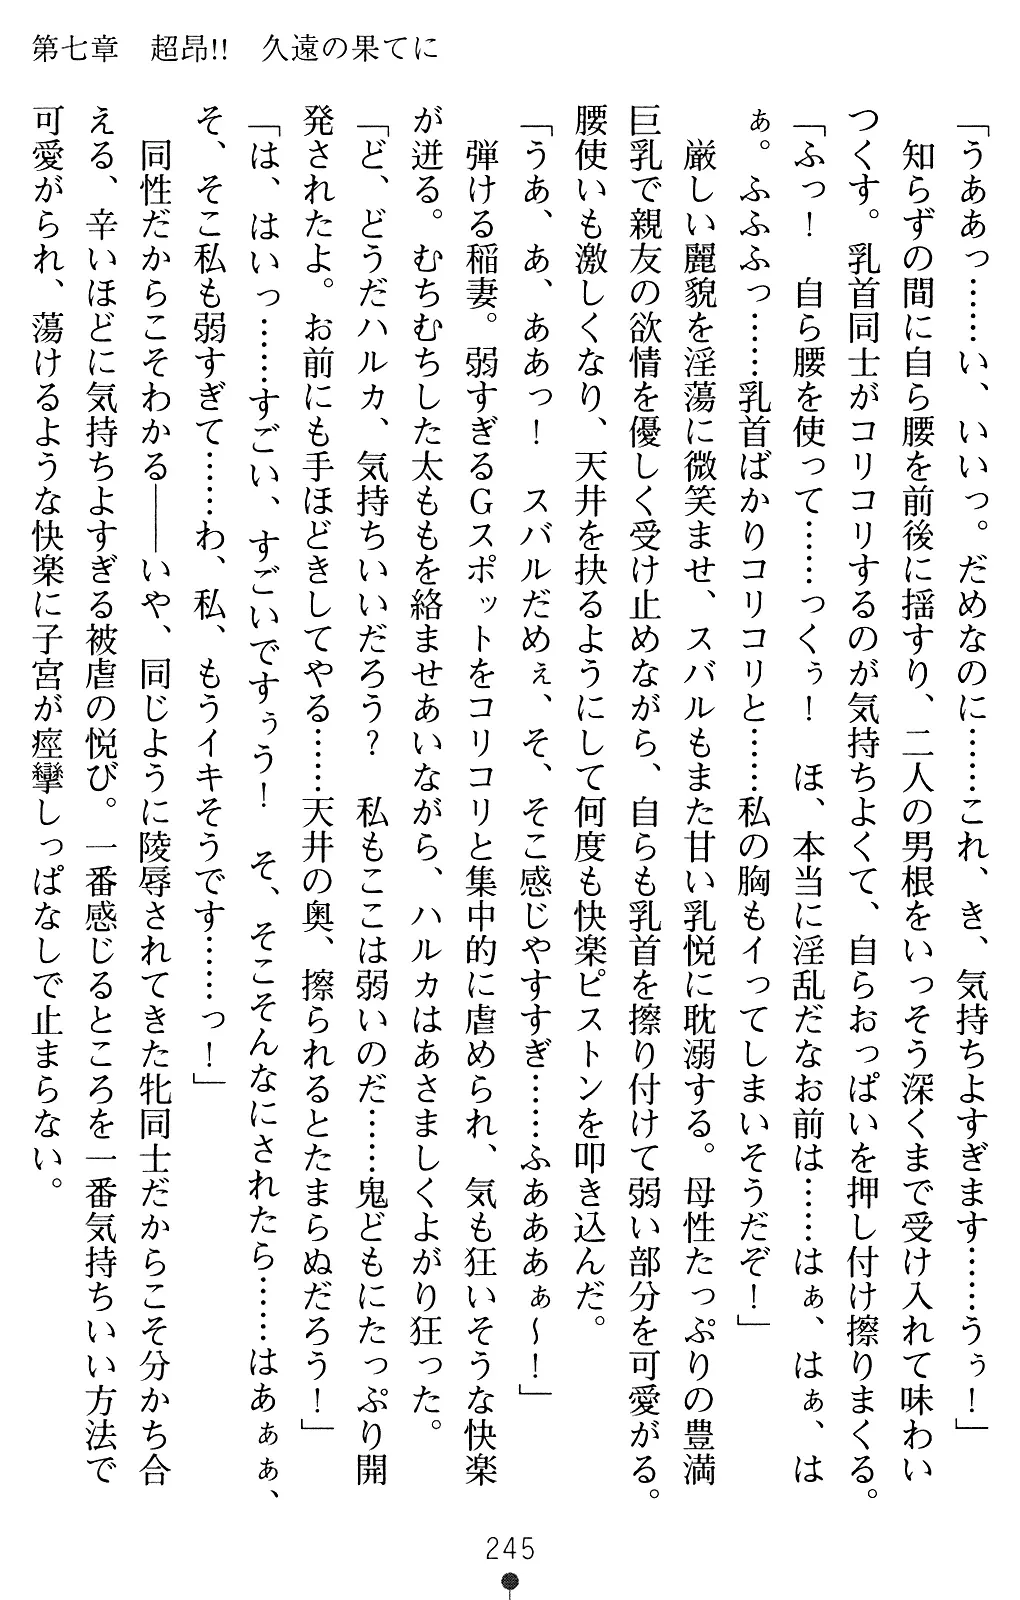 第七章　超昂!!　久遠の果てに
「うああっ……い、いいっ。だめなのに……これ、き、気持ちよすぎます……うぅ！」
　知らずの間に自ら腰を前後に揺すり、二人の男根をいっそう深くまで受け入れて味わい
つくす。乳首同士がコリコリするのが気持ちよくて、自らおっぱいを押し付け擦りまくる。
「ふっ！　自ら腰を使って……っくぅ！　ほ、本当に淫乱だなお前は……はぁ、はぁ、は
ぁ。ふふふっ……乳首ばかりコリコリと……私の胸もイってしまいそうだぞ！」
　厳しい麗貌を淫蕩に微笑ませ、スバルもまた甘い乳悦に耽溺する。母性たっぷりの豊満
巨乳で親友の欲情を優しく受け止めながら、自らも乳首を擦り付けて弱い部分を可愛がる。
腰使いも激しくなり、天井を抉るようにして何度も快楽ピストンを叩き込んだ。
「うあ、あ、ああっ！　スバルだめぇ、そ、そこ感じやすすぎ……ふあああぁ～！」
　弾ける稲妻。弱すぎるGスポットをコリコリと集中的に虐められ、気も狂いそうな快楽
が迸る。むちむちした太ももを絡ませあいながら、ハルカはあさましくよがり狂った。
「ど、どうだハルカ、気持ちいいだろう？　私もここは弱いのだ……鬼どもにたっぷり開
発されたよ。お前にも手ほどきしてやる……天井の奥、擦られるとたまらぬだろう！」
「は、はいっ……すごい、すごいですぅう！　そ、そこそんなにされたら……はあぁぁ、
そ、そこ私も弱すぎて……わ、私、もうイキそうです……っ！」
　同性だからこそわかる――いや、同じように陵辱されてきた牝同士だからこそ分かち合
える、辛いほどに気持ちよすぎる被虐の悦び。一番感じるところを一番気持ちいい方法で
可愛がられ、蕩けるような快楽に子宮が痙攣しっぱなしで止まらない。
245